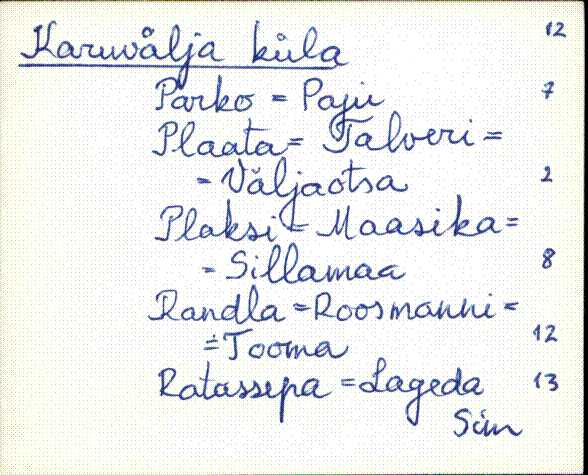 12
Karuvälja küla
Parko = Paju 7
Plaata = Talveri =
= Väljaotsa 2
Plaksi = Maasika =
= Sillamaa 8
Randla = Roosmanni =
= Tooma 12
Ratassepa = Lageda 13